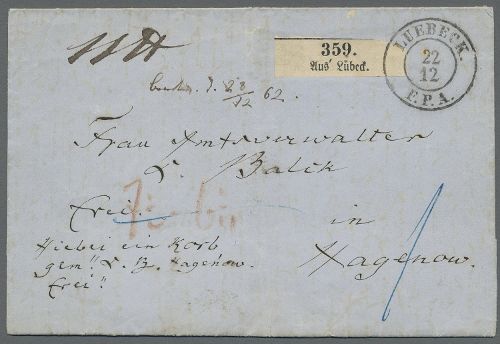 11 ℔
359.
Aus Lübeck.
LUEBECK.
22
12
F.P.A.
22
12 62.
Frau Amtsverwalter
L. Balck
frei.
in
Hagenow.
Hiebei ein Korb
gem: L. B. Hagenow.
frei"